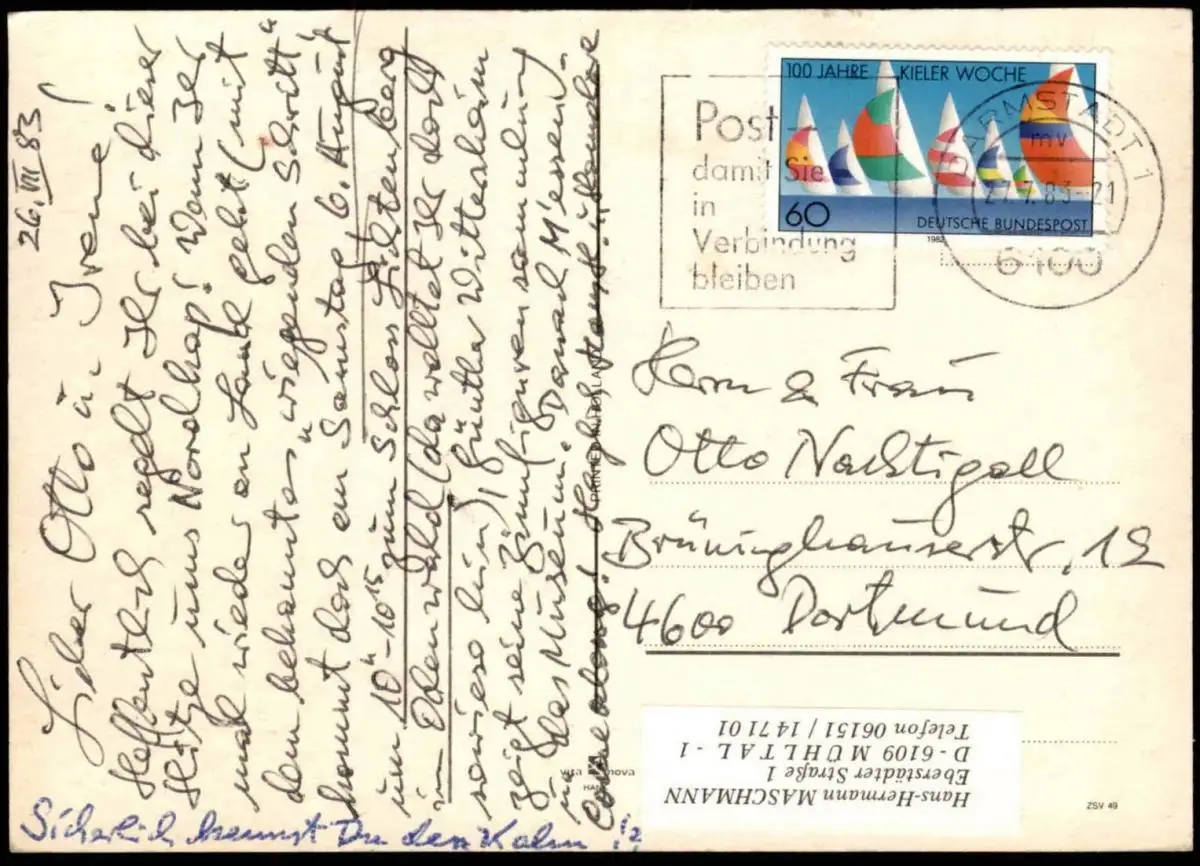 26. VII 83
Lieber Otto ü. Irene!
Hoffentlich regelt Ihr bei dieser
Hitze ums Nordkap! Wenn Ihr
mal wieder an Land geht (mit
dem bekannten "wiegenden Schritt"
kommt doch am Samstag 6. August
um 10h-10 15 zum Schloss Lichtenberg
im Odenwald (da waltet Ihr doch
sowieso hin), Günther Wittershäin
zeigt seine Zinnfigurensammlung
ü. das Museum. Danach M'essen
Sicherlich kennst Du den Kahn!?
100 JAHRE KIELER WOCHE
60
DEUTSCHE BUNDESPOST
1982
Post –
damit Sie
in
Verbindung
bleiben
DARMSTADT 1
mv
27.7.83-21
6100
Herrn & Frau
Otto Nachtigall
Brüninghauserstr. 12
4600 Dortmund
Hans-Hermann MASCHMANN
Eberstädter Straße 1
D - 6109 MÜHLTAL - 1
Telefon 06151 / 14 71 01
vita nova
ZSV 49